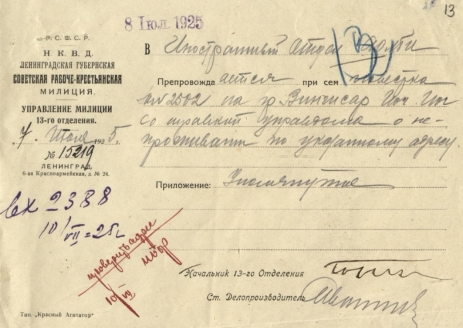 13
8 Июл. 1925
Р. С. Ф. С. Р.
Н. К. В. Д.
ЛЕНИНГРАДСКАЯ ГУБЕРНСКАЯ
СОВЕТСКАЯ РАБОЧЕ-КРЕСТЬЯНСКАЯ
МИЛИЦИЯ.
УПРАВЛЕНИЕ МИЛИЦИИ
13-го отделения.
7 Июля 1925.
№ 15219
ЛЕНИНГРАД.
6-ая Красноармейская, д. № 24.
В Иностранный Отдел
Препровождается при сем повестка
№ 2502 на гр.
со справкой управдома о не-
проживании по указанному адресу.
Приложение: Упомянутое
вх 2388
10/VII-25г
проверить адрес
10/VII
Начальник 13-го Отделения
Ст. Делопроизводитель
Тип. „Красный Агитатор“